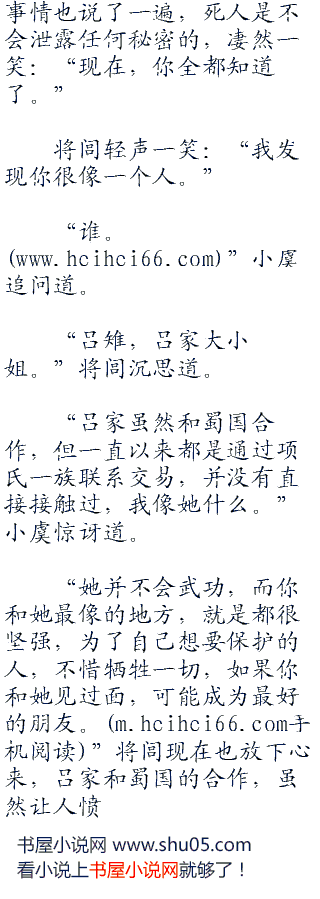 事情也说了一遍，死人是不
会泄露任何秘密的，凄然一
笑：“现在，你全都知道
了。”
将闾轻声一笑：“我发
现你很像一个人。”
“谁。
(www.hcihci66.com)”小虞
追问道。
“吕雉，吕家大小
姐。”将闾沉思道。
“吕家虽然和蜀国合
作，但一直以来都是通过项
氏一族联系交易，并没有直
接接触过，我像她什么。”
小虞惊讶道。
“她并不会武功，而你
和她最像的地方，就是都很
坚强，为了自己想要保护的
人，不惜牺牲一切，如果你
和她见过面，可能成为最好
的朋友。(m.hcihci66.com手
机阅读)”将闾现在也放下心
来，吕家和蜀国的合作，虽
然让人愤
书屋小说网 www.shu05.com
看小说上书屋小说网就够了！